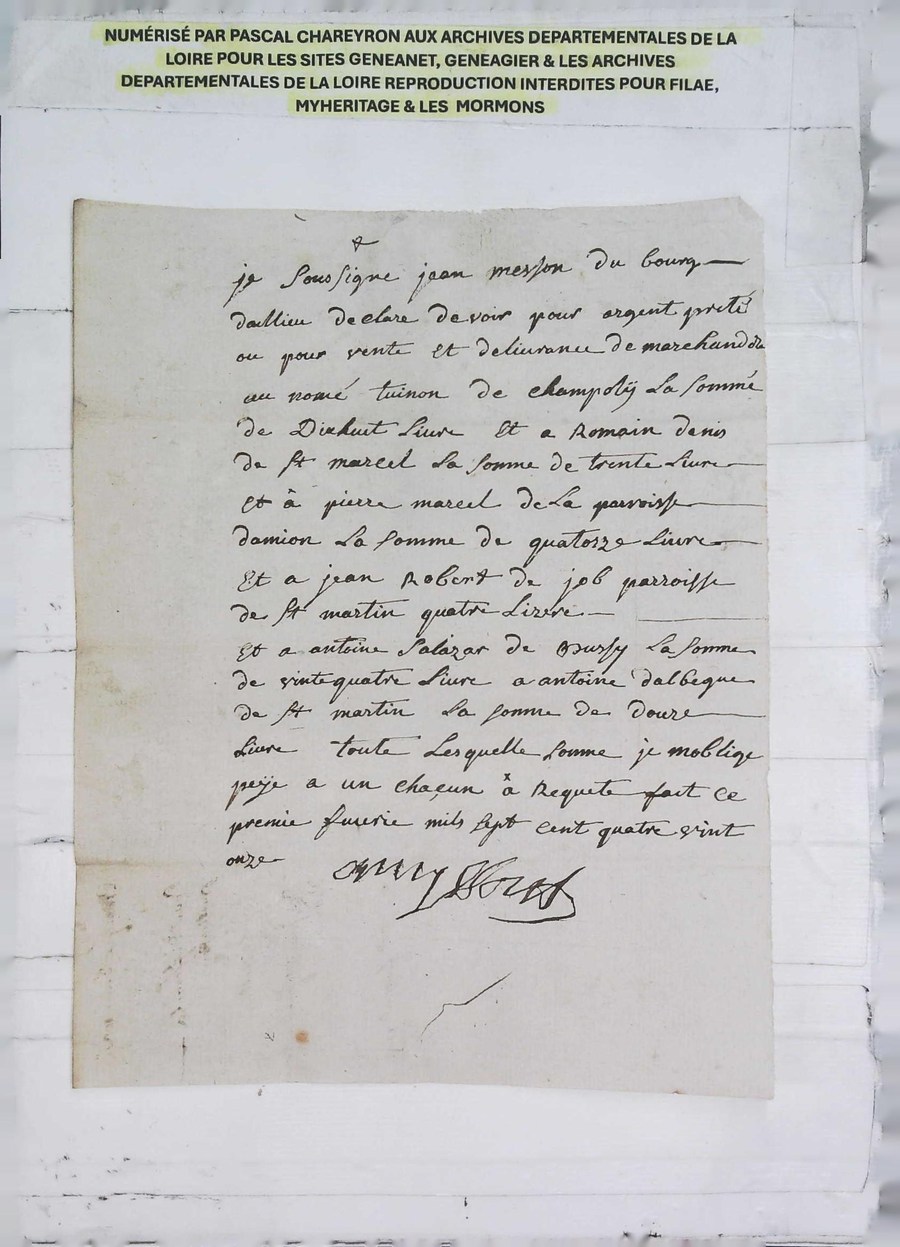 NUMÉRISÉ PAR PASCAL CHAREYRON AUX ARCHIVES DEPARTEMENTALES DE LA
LOIRE POUR LES SITES GENEANET, GENEAGIER & LES ARCHIVES
DEPARTEMENTALES DE LA LOIRE REPRODUCTION INTERDITES POUR FILAE,
MYHERITAGE & LES MORMONS
je soussigne jean messon du bourg
daillieu declare devoir pour argent preté
ou pour vente et deliurance de marchandize
au nomé tuinon de champoly La sommé
de Dixhuit Liure Et a Romain denis
de st marcel La somme de trente Liure
Et à pierre marcel de La parroisse
damion La somme de quatorze Liure
Et a jean Robert de job parroisse
de st martin quatre Livre
Et a antoine Salazar de Bussy La somme
de vintequatre Liure a antoine dalbegue
de st martin La somme de douze
Liure toute Lesquelle somme je moblige
peÿe a un chaçun à Requete fait ce
premie furerie mils sept cent quatre vint
onze